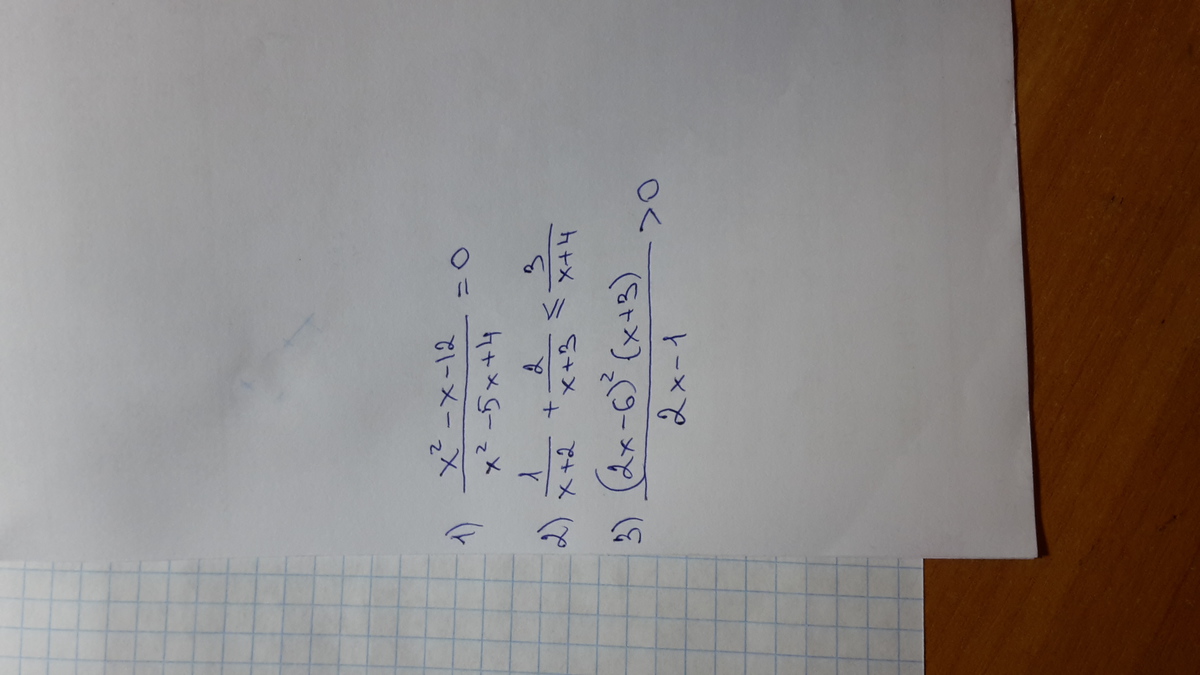 1) (x² - x - 12)/(x² - 5x + 4) = 0
2) 1/(x+2) + 2/(x+3) ≤ 3/(x+4)
3) ((2x - 6)² (x+3))/(2x - 1) > 0